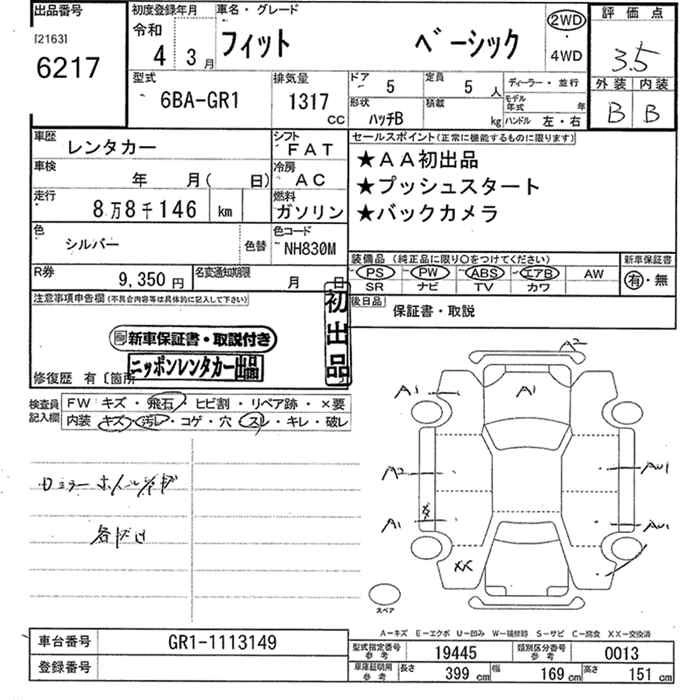 出品番号
[2163]
6217
初度登録年月
令和
4 3月
車名・グレード
フィット ベーシック
2WD
・
4WD
評価点
3.5
外装 内装
B B
型式
6BA-GR1
排気量
1317 CC
ドア 5
定員 5 人
ディーラー・並行
形状 ハッチB
積載 kg
モデル年式 年
ハンドル 左・右
車歴 レンタカー
シフト FAT
車検 年 月( 日)
冷房 AC
走行 8万8千146 km
燃料 ガソリン
色 シルバー 色替
色コード NH830M
R券 9,350円
名変通知期限 月 日
セールスポイント(正常に機能するものに限ります)
★AA初出品
★プッシュスタート
★バックカメラ
装備品(純正品に限り○をつけてください)
新車保証書
PS PW ABS エアB AW
SR ナビ TV カワ
有・無
後日品 保証書・取説
注意事項申告欄(不具合内容等は具体的に記入して下さい)
初出品
新車保証書・取説付き
ニッポンレンタカー出品
修復歴 有〔箇所
検査員記入欄
FW キズ・飛石・ヒビ割・リペア跡・×要
内装 キズ・汚レ・コゲ・穴・スレ・キレ・破レ
A2
A1
A1
A2
AU1
A1
X
AU1
XX
スペア
A-キズ E-エクボ U-凹み W-補修跡 S-サビ C-腐食 XX-交換済
車台番号 GR1-1113149
登録番号
型式指定番号 参考 19445
類別区分番号 参考 0013
車庫証明用 参考 長さ 399 cm 幅 169 cm 高さ 151 cm